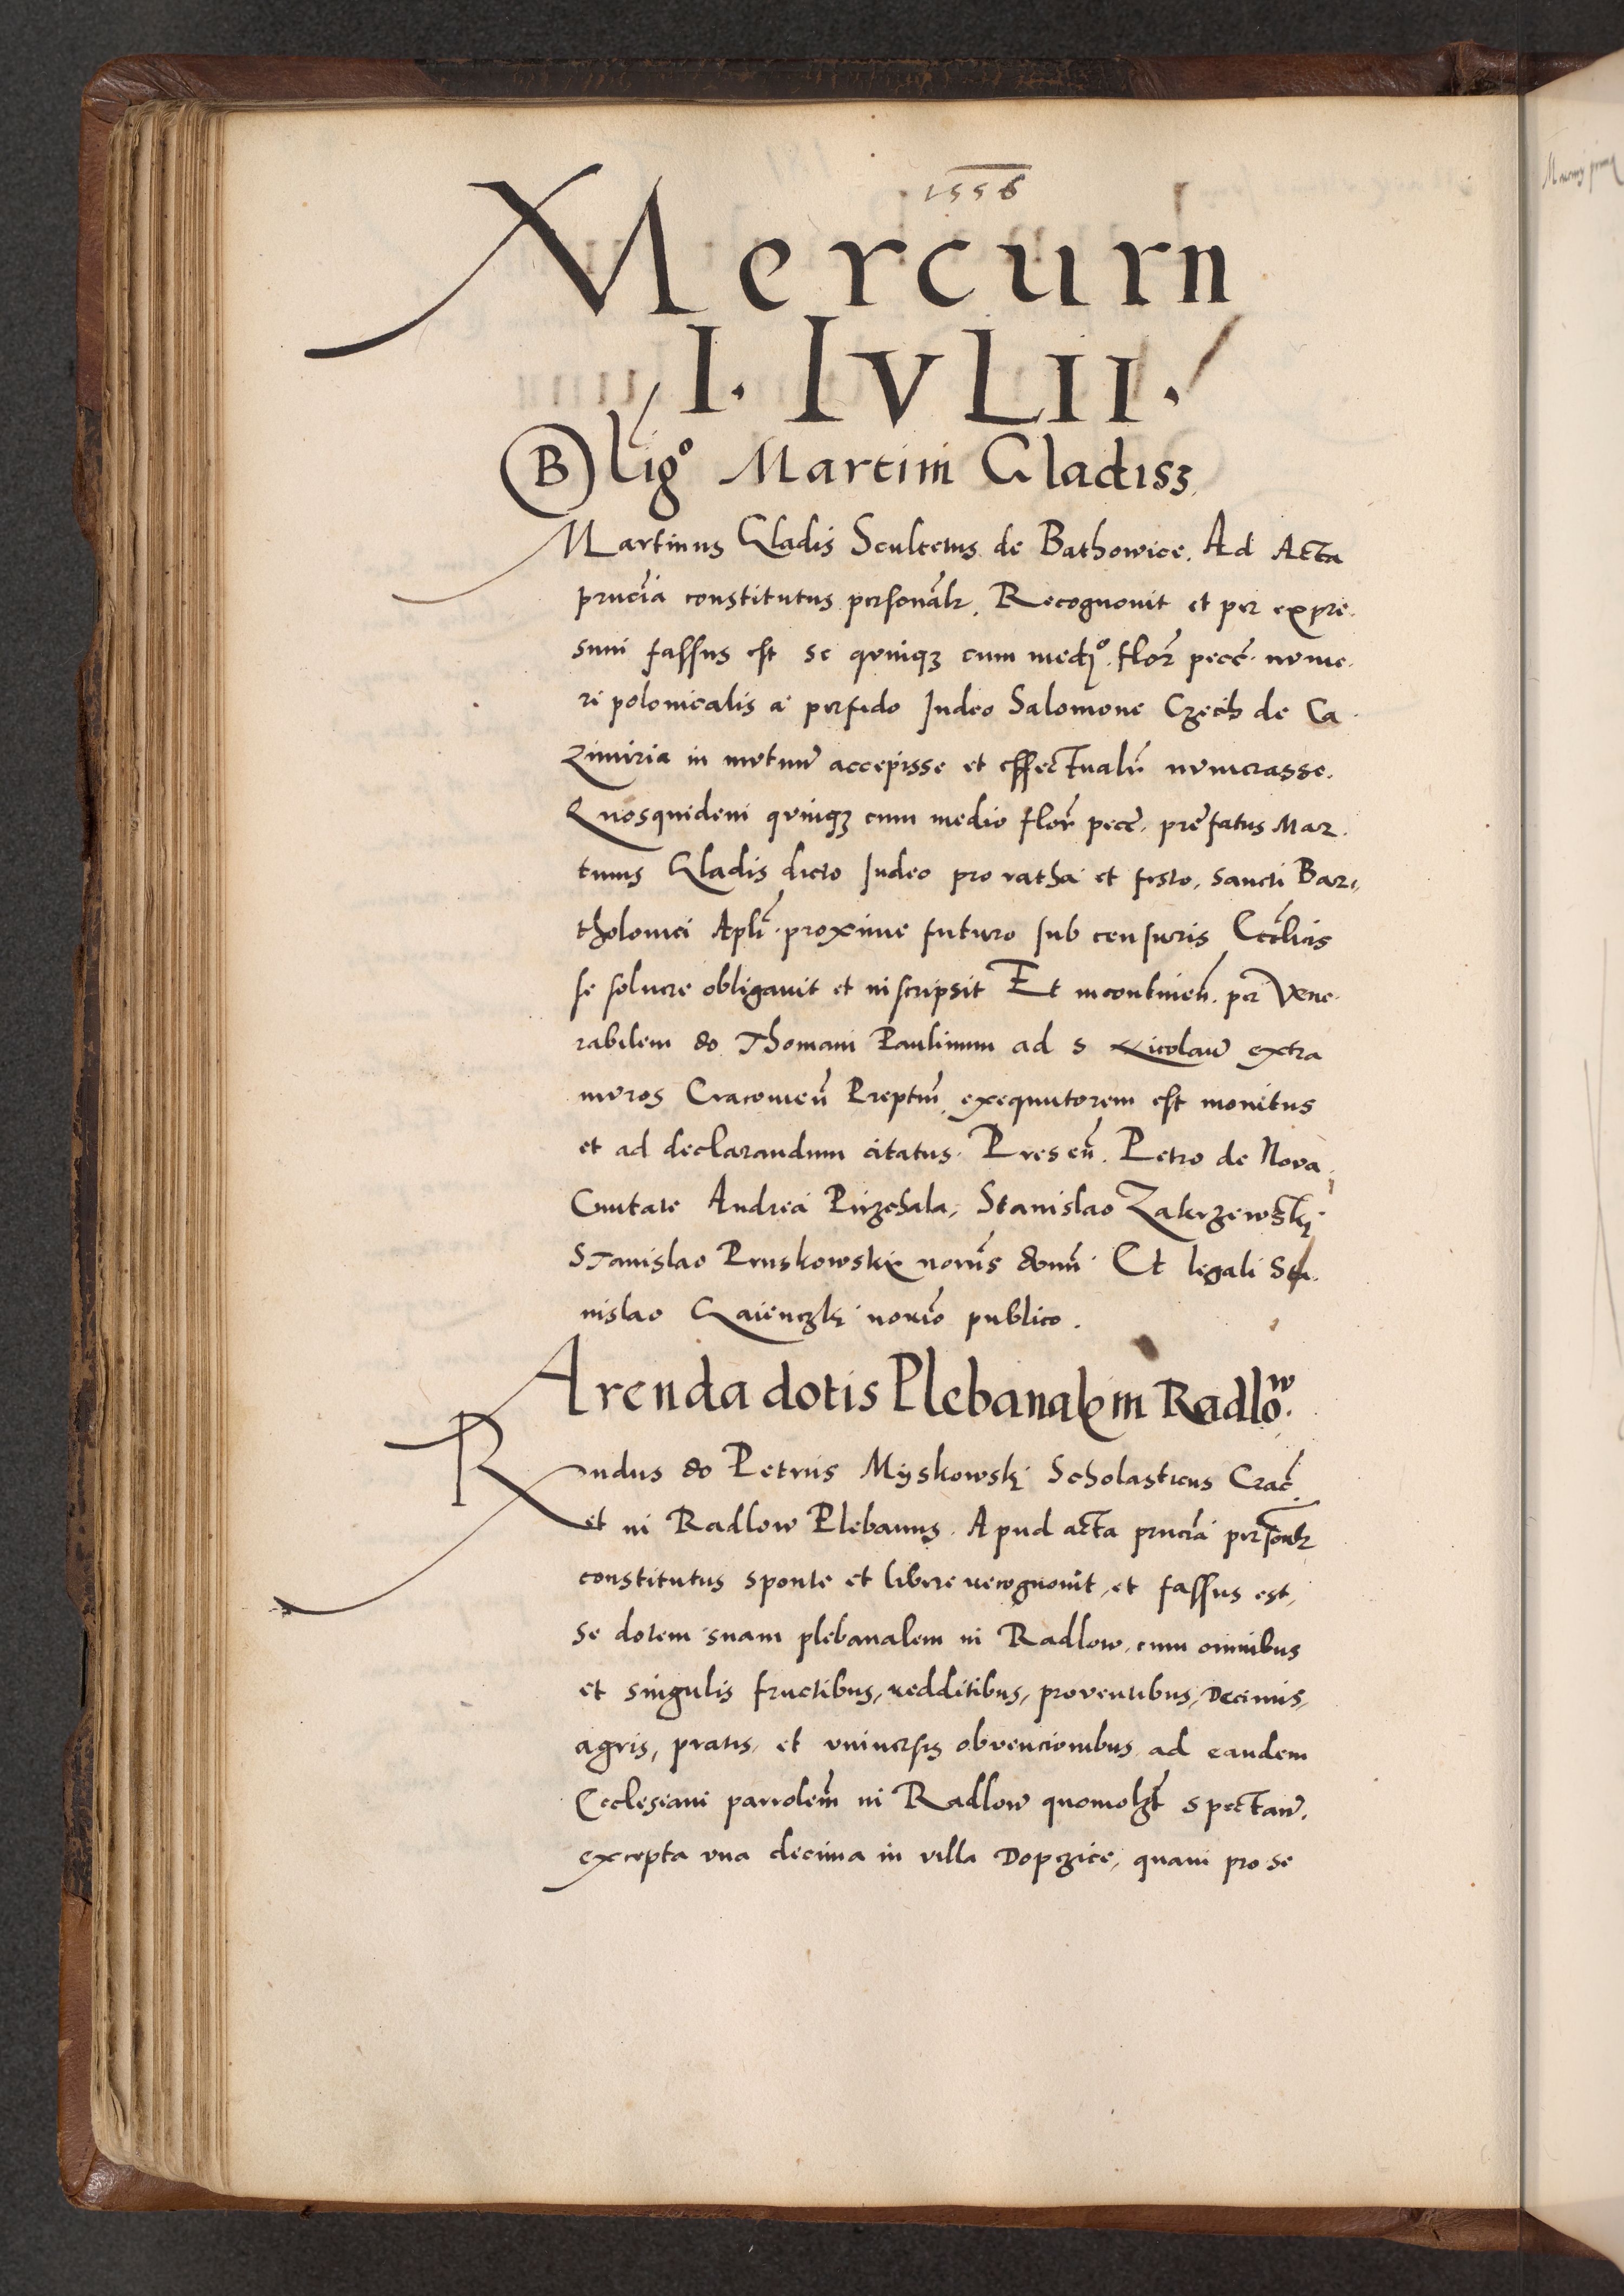 1556
Mercurii
I. IVLII.
Obligo Martini Gladisz
Martinus Gladis Scultetus de Bathowice. Ad Acta
prncia constitutus personalr. Recognovit et per expre.
sum fassus est se quinqz cum medio. flor pecc. nume.
ri polonicalis a perfido Iudeo Salomone Czech de Ca
zimiria in mutuu accepisse et effectualr numerasse.
Quosquidem quinqz cum medio flor pecc. prefatus Mar.
tinus Gladis dicto Iudeo pro ratha et festo. Sancti Bar,
tholomei Apli. proxime futuro sub censuris Ecclicis
se solvere obligavit et inscripsit Et incontinen. per Vene.
rabilem do Thomam Paulinum ad S Nicolau extra
muros Cracovien Preptm exequutorem est monitus
et ad declarandum citatus. Presen. Petro de Nova
Civitate Andrea Pirzchala, Stanislao Zakrzewski
Stanislao Pruskowski noriis domn. Et legali Sta.
nislao Gaienczki norio publico.
Arenda dotis Plebanal in Radlow.
Rndus do Petrus Myskowski Scholasticus Crac
et in Radlow Plebanus. Apud acta prncia personlr
constitutus sponte et libere recognovit, et fassus est,
se dotem suam plebanalem in Radlow, cum omnibus
et singulis fructibus, redditibus, proventibus, Decimis,
agris, pratis, et universis obvencionibus ad eandem
Ecclesiam parrolem in Radlow quomolzt spectan.
excepta una decima in villa Dopczice, quam pro se